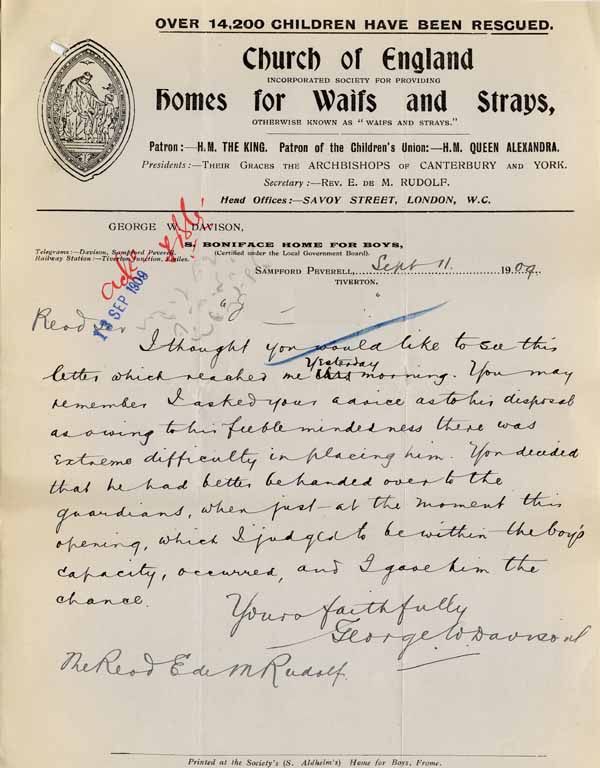 OVER 14,200 CHILDREN HAVE BEEN RESCUED.
Church of England
INCORPORATED SOCIETY FOR PROVIDING
Homes for Waifs and Strays,
OTHERWISE KNOWN AS "WAIFS AND STRAYS."
Patron:—H.M. THE KING. Patron of the Children's Union:—H.M. QUEEN ALEXANDRA.
Presidents:—THEIR GRACES THE ARCHBISHOPS OF CANTERBURY AND YORK.
Secretary:—REV. E. DE M. RUDOLF.
Head Offices:—SAVOY STREET, LONDON, W.C.
GEORGE W. DAVISON,
S. BONIFACE HOME FOR BOYS,
Telegrams:—Davison, Sampford Peverell.
(Certified under the Local Government Board).
Railway Station:—Tiverton Junction, Miles.
SAMPFORD PEVERELL, Sept 11. 1909
TIVERTON.
13 SEP 1909
Revd Sir
I thought you would like to see this
letter which reached me this Yesterday morning. You may
remember I asked your advice as to his disposal
as owing to his feeble mindedness there was
extreme difficulty in placing him. You decided
that he had better be handed over to the
guardians, when just at the moment this
opening, which I judged to be within the boy's
capacity, occurred, and I gave him the
chance.
Yours faithfully
George W. Davison
The Revd E de M Rudolf.
Printed at the Society's (S. Aldhelm's) Home for Boys, Frome.